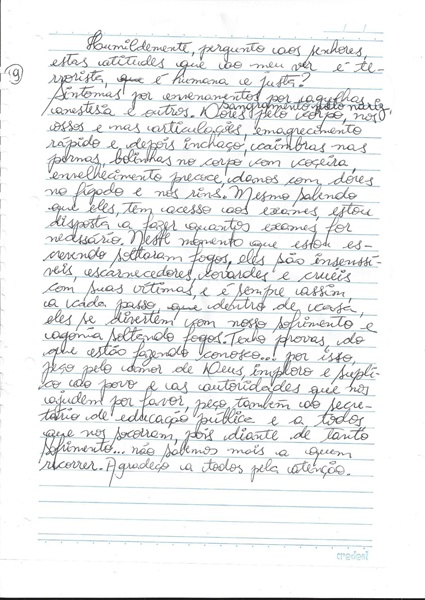 9
Humildemente, pergunto aos senhores,
estas atitudes que ao meu ver é te-
rrorista, que é humana e justa?
Sintomas por envenenamentos por agulhas
sangramento pelo nariz,
anestesia e outros. Dores pelo corpo, nos
ossos e nas articulações, emagrecimento
rápido e depois inchaço, caimbras nas
pernas, bolinhas no corpo com coçeira,
envelhecimento precoce, danos com dores
no fígado e nos rins. Mesmo sabendo
que eles, tem acesso aos exames, estou
disposta a fazer quantos exames for
necessário. Neste momento que estou es-
crevendo soltaram fogos, eles são insenssí-
veis, escarnecedores, covardes e cruéis
com suas vítimas, e é sempre assim,
a cada passo, que dentro de casa,
eles se divertem com nosso sofrimento e
agonia soltando fogos. Tenho provas, do
que estão fazendo conosco... por isso,
peço pelo amor de Deus, imploro e supli-
co ao povo e as autoridades que nos
ajudem por favor, peço também ao secre-
tário de educação pública e a todos
que nos socorram, pois diante de tanto
sofrimento... não sabemos mais a quem
recorrer. Agradeço a todos pela atenção.
credeal